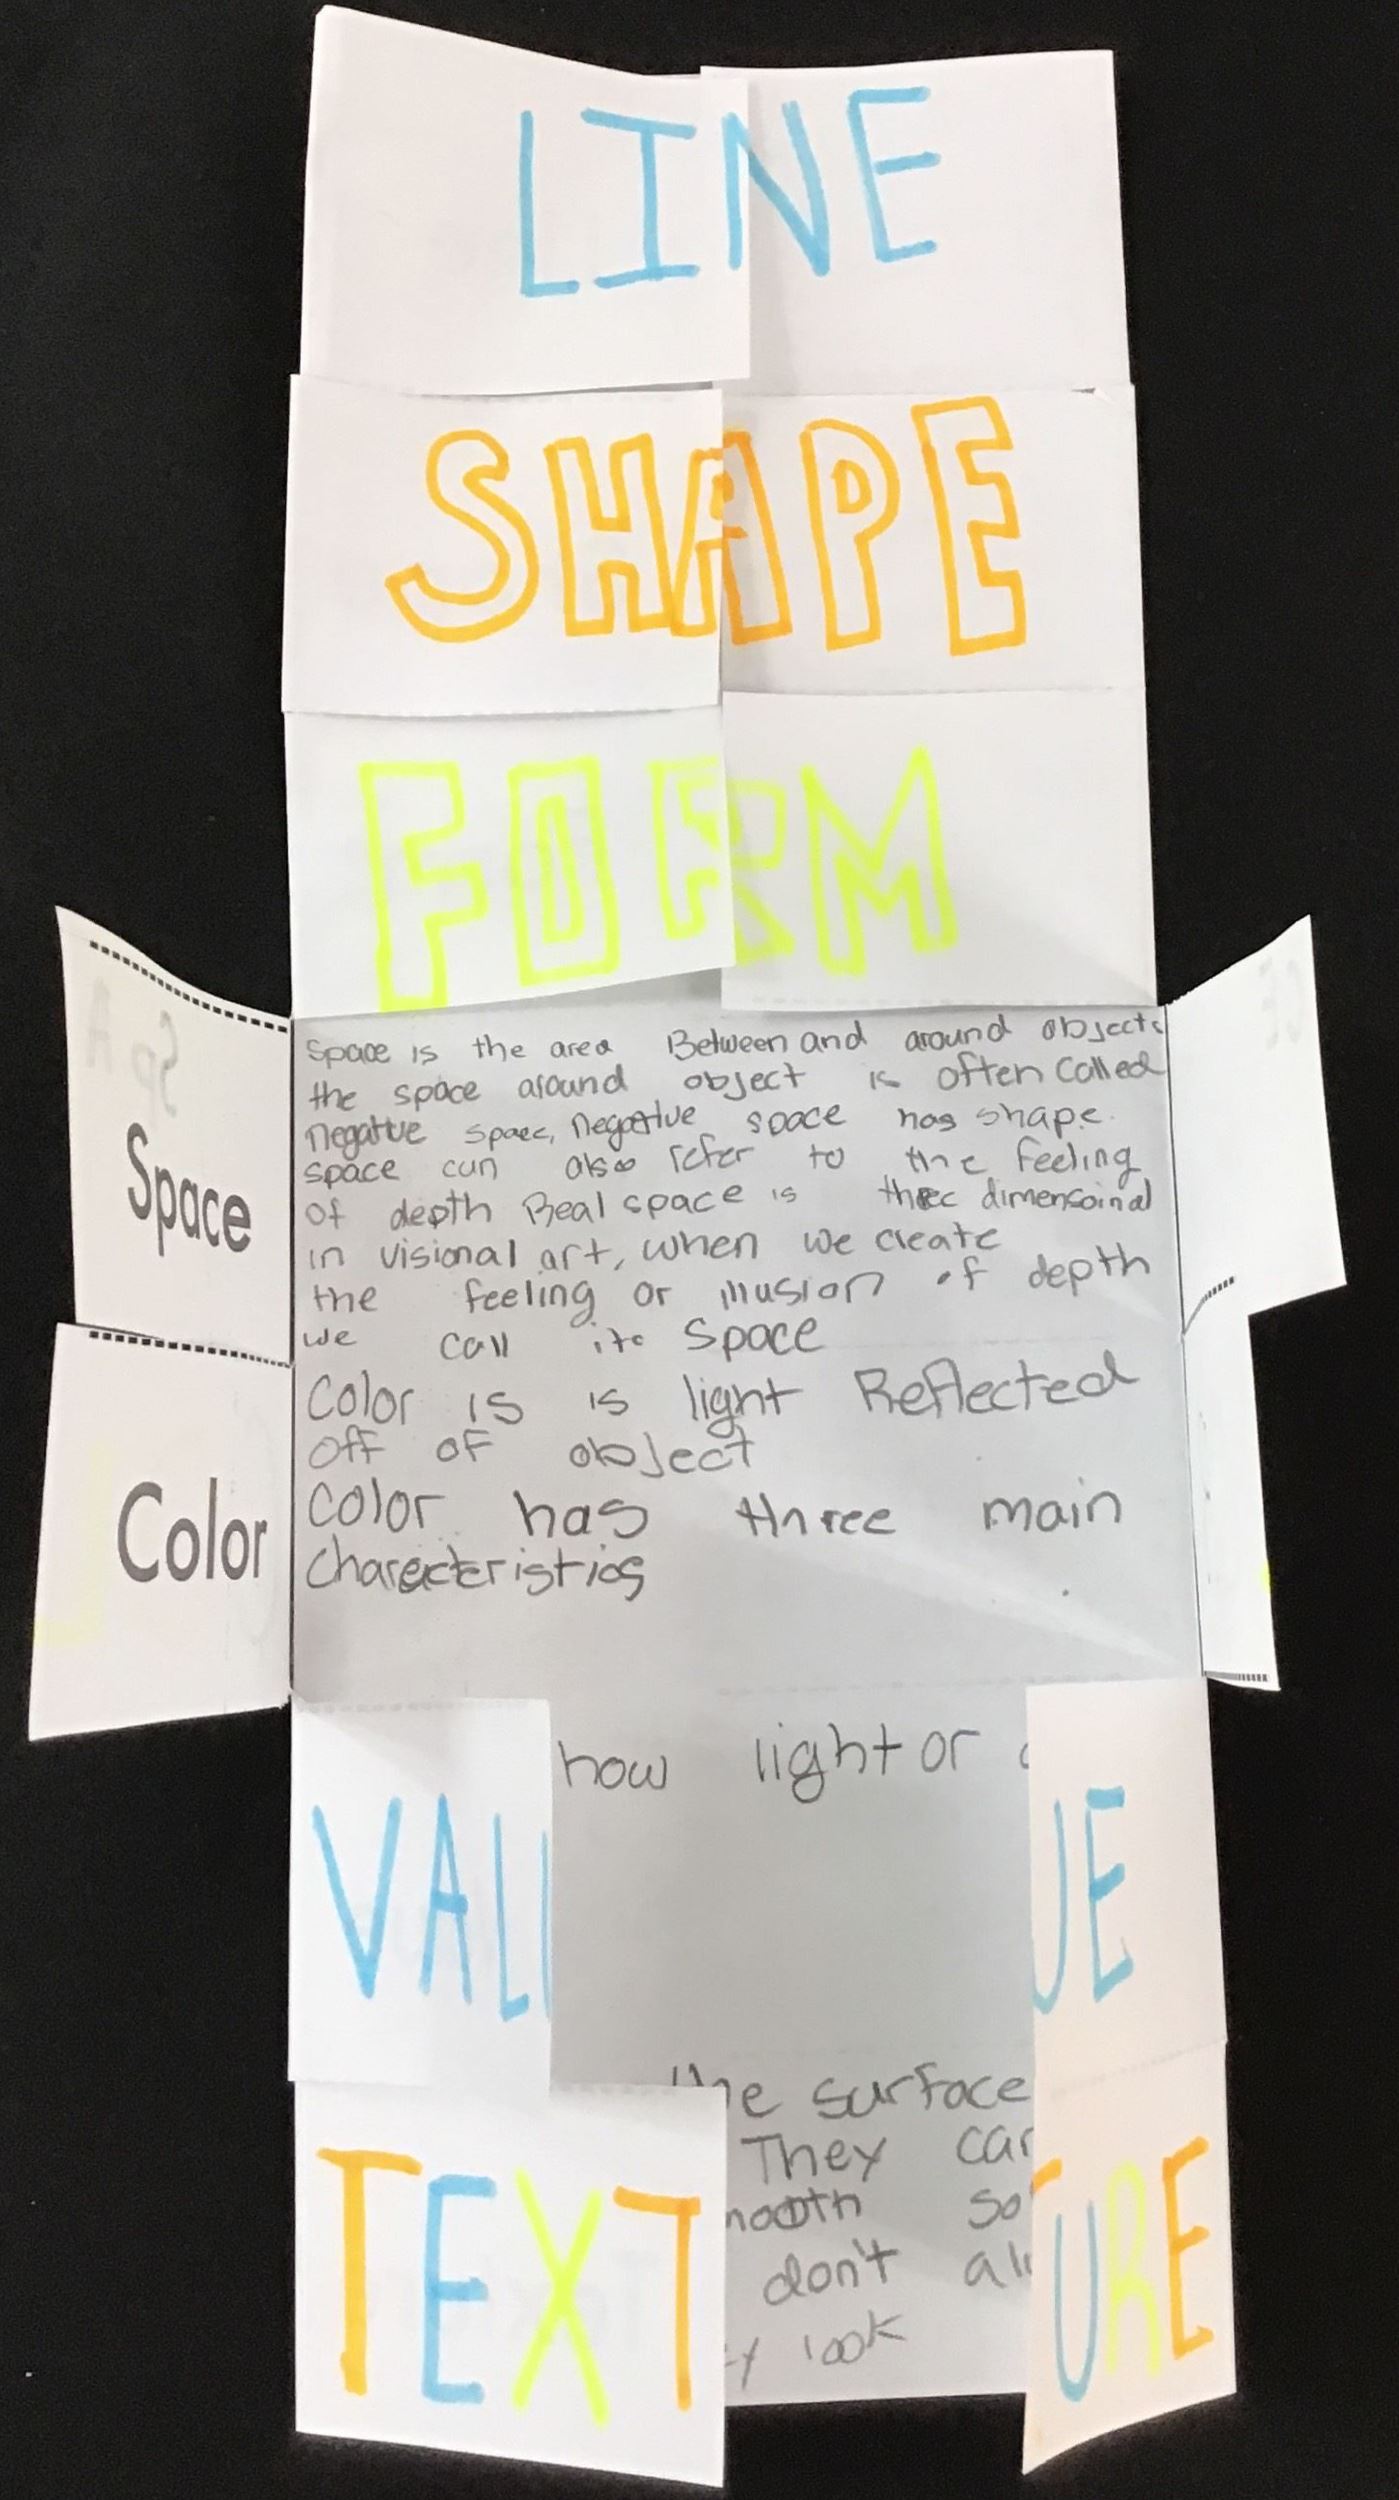 LINE
SHAPE
FORM
Space
Space is the area Between and around objects
the space around object is often called
negative space, negative space has shape.
space can also refer to the feeling
of depth Real space is three dimensoinal
in visional art, when we create
the feeling or illusion of depth
we call it Space
Color
Color is is light Reflected
off of object
Color has three main
charecteristics
how light or
VALUE
the surface
They
don't
look
TEXTURE